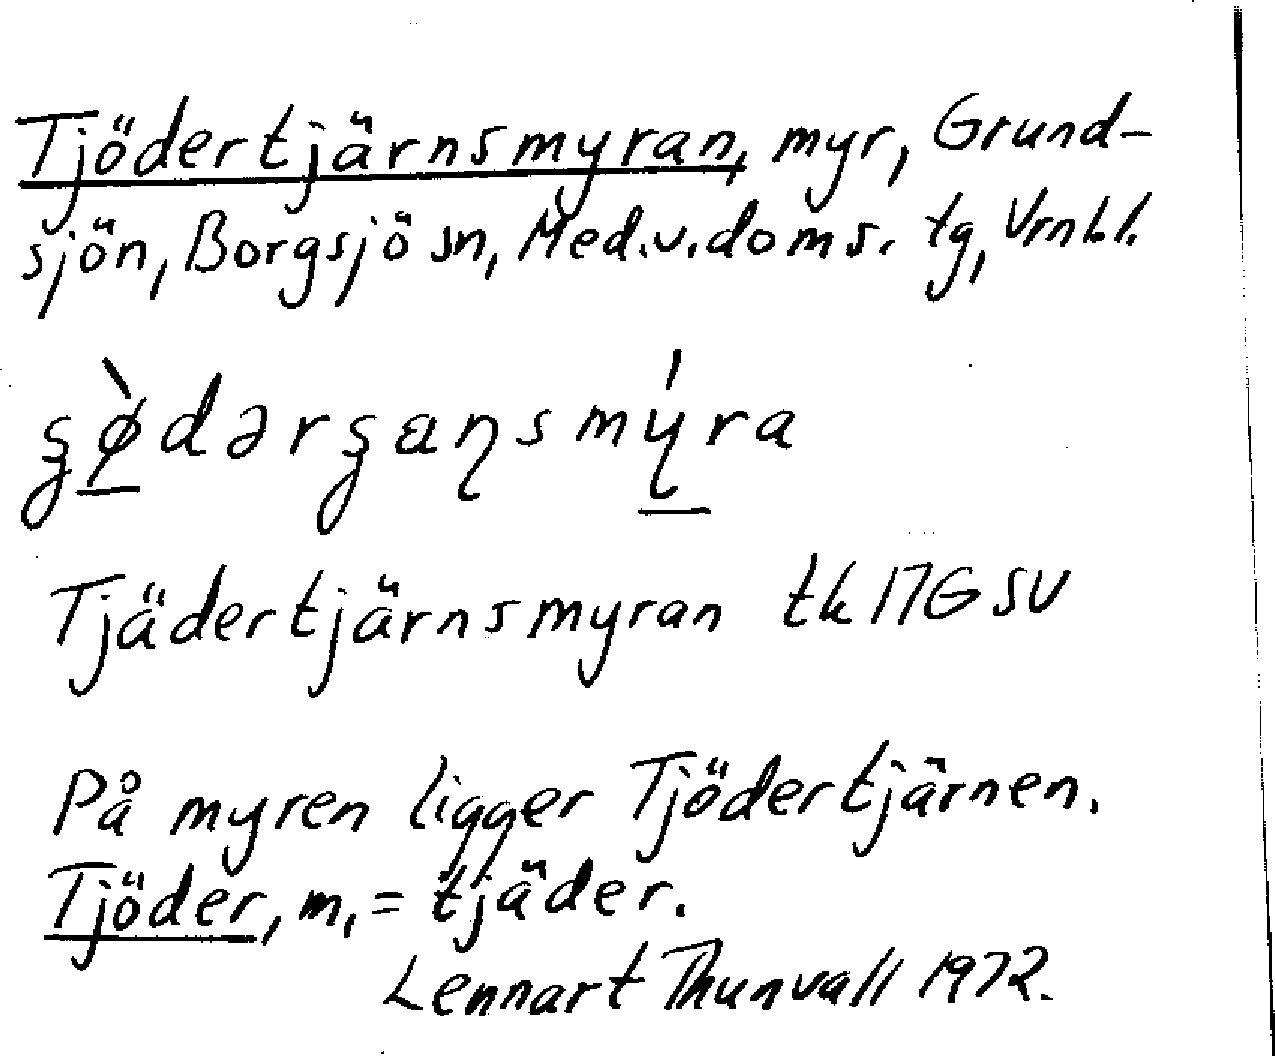 Tjödertjärnsmyran, myr, Grund-
sjön, Borgsjö sn, Med.v.doms. tg, Vrnl.l.
Tjädertjärnsmyran tk 17G SV
På myren ligger Tjödertjärnen.
Tjöder, m, = tjäder.
Lennart Thunvall 1972.